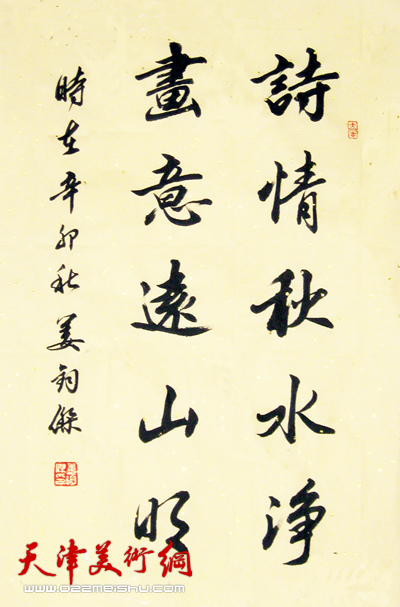 詩情秋水淨
畫意遠山明
時在辛卯秋姜鈞傑
天津美術網
www.022meishu.com